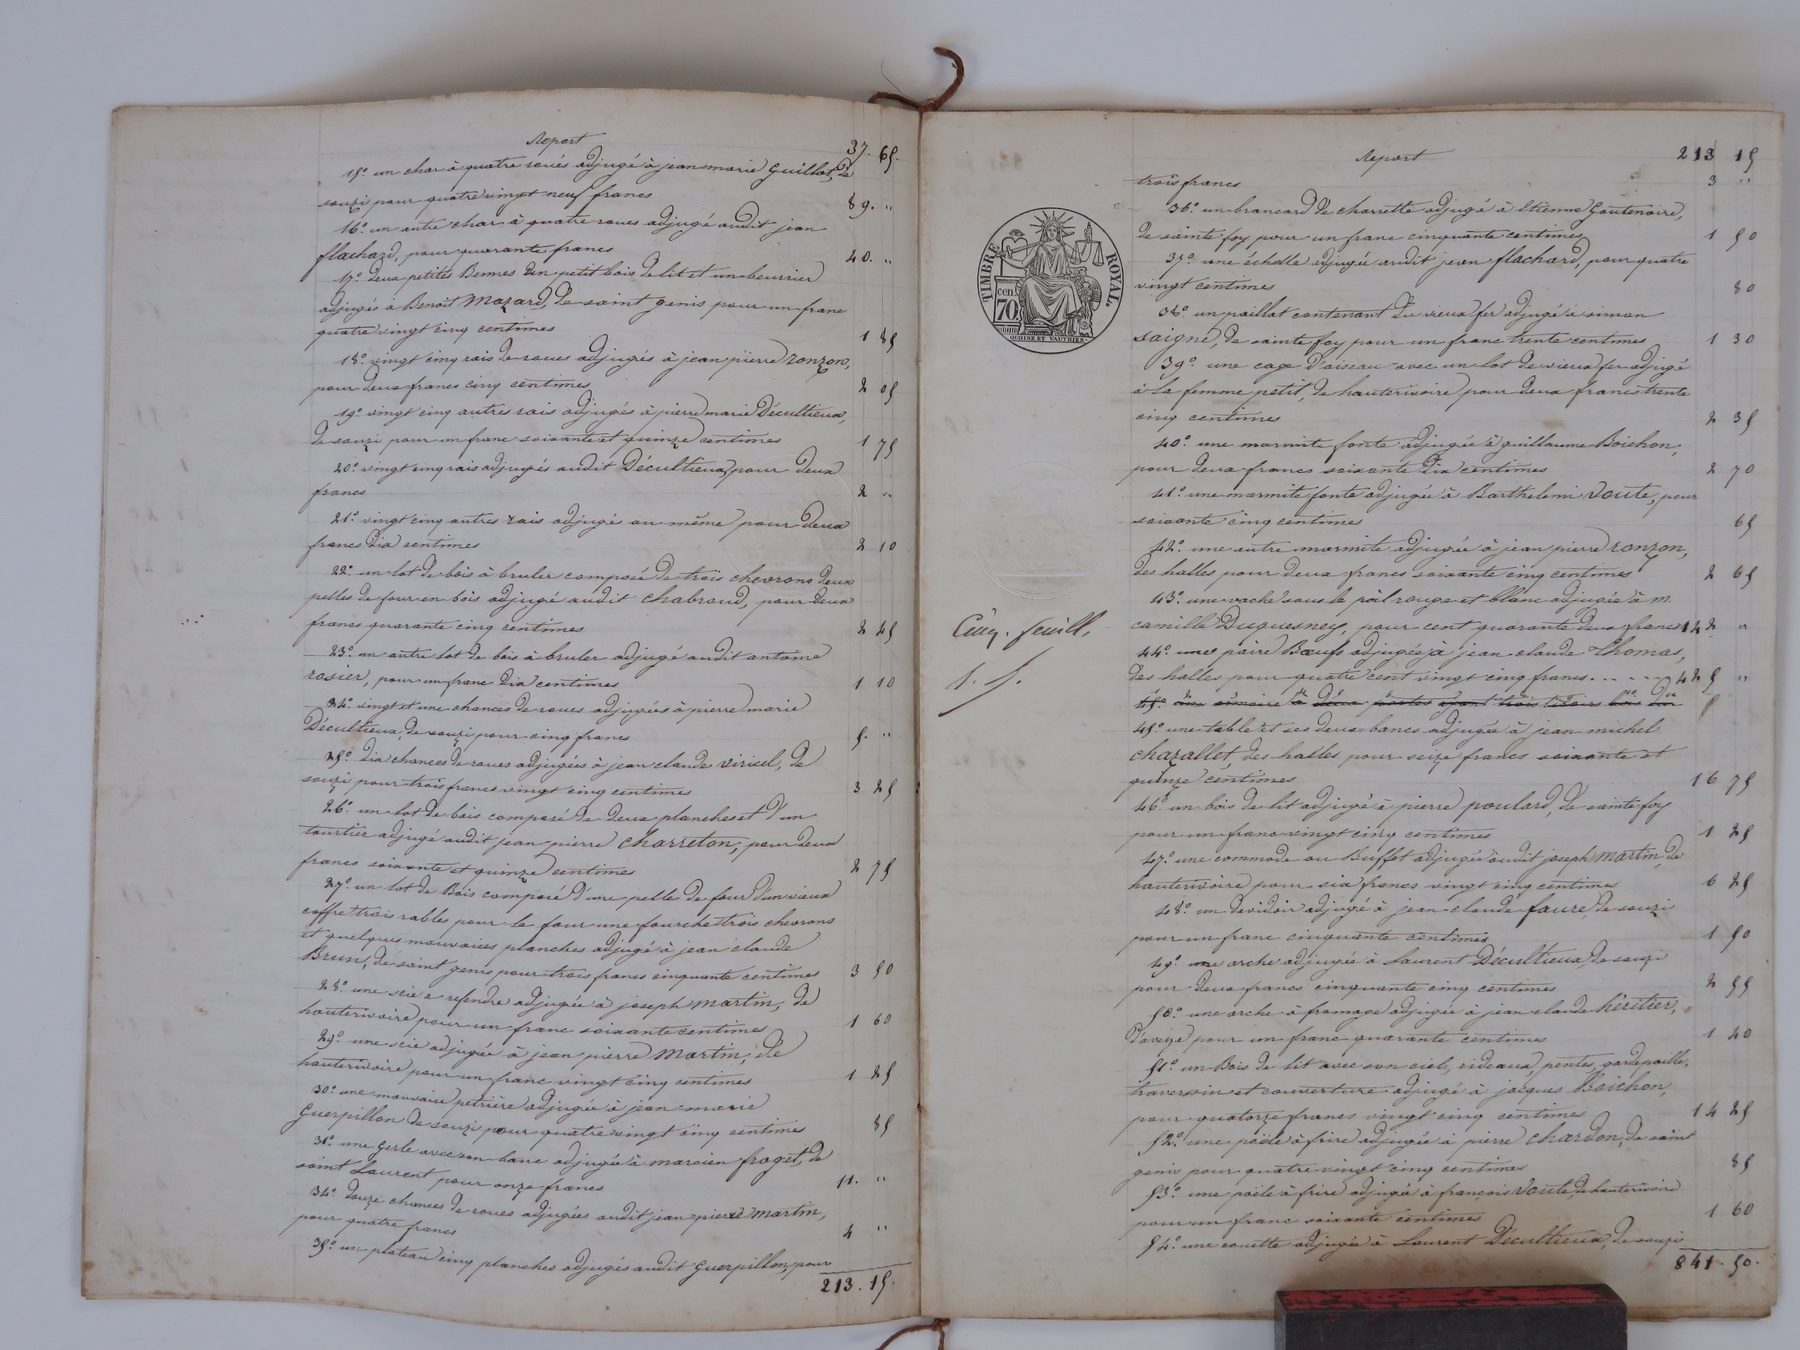 Report 37. 65.
15.° un char à quatre roues adjugé à jean marie Guillot, de
souzi pour quatre vingt neuf francs 89. "
16.° un autre char à quatre roues adjugé audit jean
flachard, pour quarante francs 40. "
17.° deux petites Bennes un petit bois de lit et un beurrier
adjugés à Benoit Mazard, de saint genis pour un franc
quatre vingt cinq centimes 1 85
18.° vingt cinq rais de roues adjugés à jean pierre ronzon,
pour deux francs cinq centimes 2 05
19.° vingt cinq autres rais adjugés à pierre marie Décultieux,
de souzi pour un franc soixante et quinze centimes 1 75
20.° vingt cinq rais adjugés audit Décultieux, pour deux
francs 2 "
21.° vingt cinq autres rais adjugés au même pour deux
francs dix centimes 2 10
22.° un lot de bois à bruler composé de trois chevrons deux
pelles de four en bois adjugé audit chabroud, pour deux
francs quarante cinq centimes 2 45
23.° un autre lot de bois à bruler adjugé audit antoine
rosier, pour un franc dix centimes 1 10
24.° vingt et une chances de roues adjugées à pierre marie
Décultieux, de souzi pour cinq francs 5. "
25.° dix chances de roues adjugées à jean claude viricel, de
souzi pour trois francs vingt cinq centimes 3 25
26.° un lot de bois composé de deux planches et d'un
tourtier adjugé audit jean pierre charreton, pour deux
francs soixante et quinze centimes 2 75
27.° un lot de Bois composé d'une pelle de four d'un vieux
coffre trois rables pour le four une fourche trois chevrons
et quelques mauvaises planches adjugé à jean claude
Brun, de saint genis pour trois francs cinquante centimes 3 50
28.° une scie à refendre adjugée à joseph martin, de
hauterivoire pour un franc soixante centimes 1 60
29.° une scie adjugée à jean pierre martin, de
hauterivoire pour un franc vingt cinq centimes 1 25
30.° une mauvaise petrière adjugée à jean marie
Guerpillon de souzi pour quatre vingt cinq centimes 85
31.° une gerle avec son banc adjugée à marcien froget, de
saint Laurent pour onze francs 11. "
34.° douze chances de roues adjugées audit jean pierre martin,
pour quatre francs 4 "
35.° un plateau cinq planches adjugés audit Guerpillon, pour
213. 15.
Report 213 15
trois francs 3 "
36.° un brancard de charrette adjugé à Etienne Goutenoire,
de sainte foy pour un franc cinquante centimes 1 50
37.° une échelle adjugée audit jean flachard, pour quatre
vingt centimes 80
38.° un paillat contenant du vieux fer adjugé à simon
saigne, de sainte foy pour un franc trente centimes 1 30
39.° une cage d'oiseau avec un lot de vieux fer adjugé
à la femme petit, de hauterivoire pour deux francs trente
cinq centimes 2 35
40.° une marmite fonte adjugée à guillaume Boichon,
pour deux francs soixante dix centimes 2 70
41.° une marmite fonte adjugée à Barthelemi Voute, pour
soixante cinq centimes 65
42.° une autre marmite adjugée à jean pierre ronzon,
des halles pour deux francs soixante cinq centimes 2 65
43.° une vache sous le poil rouge et blanc adjugée à m.
camille Duquesney, pour cent quarante deux francs 142 "
44.° une paire Bœufs adjugés à jean claude Thomas,
des halles pour quatre cent vingt cinq francs. . . . . 425 "
45.° une armoire à deux portes ayant trois tiroirs bois dur
45.° une table et ses deux bancs adjugée à jean michel
chazallet, des halles pour seize francs soixante et
quinze centimes 16 75
46.° un bois de lit adjugé à pierre poulard, de sainte foy
pour un franc vingt cinq centimes 1 25
47.° une commode ou Buffet adjugée audit joseph martin, de
hauterivoire pour six francs vingt cinq centimes 6 25
48.° un devidoir adjugé à jean claude faure de souzi
pour un franc cinquante centimes 1 50
49.° une arche adjugée à Laurent Décultieux, de souzi
pour deux francs cinquante cinq centimes 2 55
50.° une arche à fromage adjugée à jean claude héritier,
d'aveize pour un franc quarante centimes 1 40
51.° un Bois de lit avec son ciel, rideaux, pentes, garde paille,
traversin et couverture adjugé à jacques Boichon,
pour quatorze francs vingt cinq centimes 14 25
52.° une poële à frire adjugée à pierre chardon, de saint
genis pour quatre vingt cinq centimes 85
53.° une poële à frire adjugée à françois Voute, de hauterivoire
pour un franc soixante centimes 1 60
54.° une couette adjugée à Laurent Décultieux, de souzi
841. 50.
TIMBRE ROYAL.
cen.
70.
OUDINE ET VAUTHIER.
Cinq. feuill,